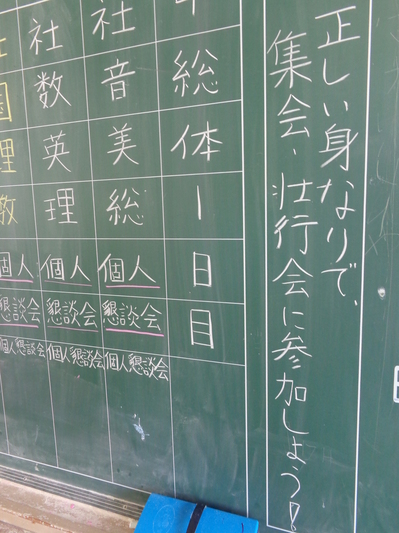 正しい身なりで、
集会、壮行会に参加しよう！
総
体
１
日
目
社
音
美
総
個人
懇談会
個人懇談会
社
数
英
理
個人
懇談会
個人懇談会
国
理
数
個人
懇談会
個人懇談会